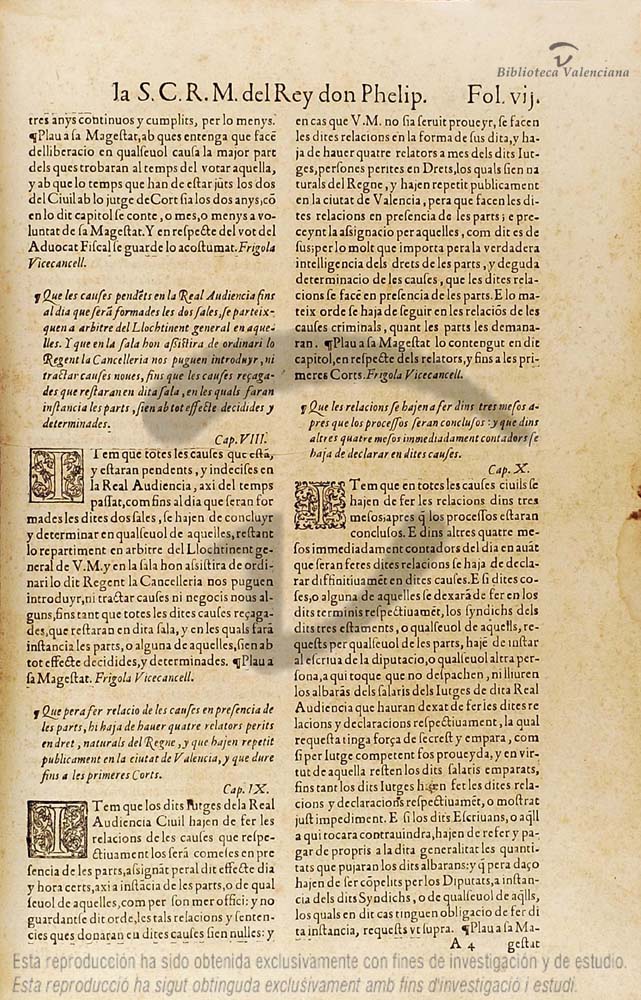 Biblioteca Valenciana
la S. C. R. M. del Rey don Phelip. Fol. vij.
tres anys continuos y cumplits, per lo menys.
¶Plau a sa Magestat, ab ques entenga que facē
delliberacio en qualseuol causa la major part
dels ques trobaran al temps del votar aquella,
y ab que lo temps que han de estar jūts los dos
del Ciuil ab lo jutge de Cort sia los dos anys, cō
en lo dit capitol se conte, o mes, o menys a vo-
luntat de sa Magestat. Y en respecte del vot del
Aduocat Fiscal se guarde lo acostumat. Frigola
Vicecancell.
¶ Que les causes pendēts en la Real Audiencia fins
al dia que serā formades les dos sales, se parteix-
quen a arbitre del Llochtinent general en aque-
lles. Y que en la sala hon assistira de ordinari lo
Regent la Cancelleria nos puguen introduyr, ni
tractar causes noues, fins que les causes reçaga-
des que restaran en dita sala, en les quals faran
instancia les parts, sien ab tot effecte decidides y
determinades.
Cap. VIII.
ITem que totes les causes que estā,
y estaran pendents, y indecises en
la Real Audiencia, axi del temps
passat, com fins al dia que seran for
mades les dites dos sales, se hajen de concluyr
y determinar en qualseuol de aquelles, restant
lo repartiment en arbitre del Llochtinent ge-
neral de V. M. y en la sala hon assistira de ordi-
nari lo dit Regent la Cancelleria nos puguen
introduyr, ni tractar causes ni negocis nous al-
guns, fins tant que totes les dites causes reçaga-
des, que restaran en dita sala, y en les quals farā
instancia les parts, o alguna de aquelles, sien ab
tot effecte decidides, y determinades. ¶Plau a
sa Magestat. Frigola Vicecancell.
¶ Que pera fer relacio de les causes en presencia de
les parts, hi haja de hauer quatre relators perits
en dret, naturals del Regne, y que hajen repetit
publicament en la ciutat de Valencia, y que dure
fins a les primeres Corts.
Cap. IX.
ITem que los dits Iutges de la Real
Audiencia Ciuil hajen de fer les
relacions de les causes que respe-
ctiuament los serā comeses en pre
sencia de les parts, assignāt peral dit effecte dia
y hora certs, axi a instācia de les parts, o de qual
seuol de aquelles, com per son mer offici: y no
guardantse dit orde, les tals relacions y senten-
cies ques donaran en dites causes sien nulles: y
en cas que V. M. no sia seruit proueyr, se facen
les dites relacions en la forma de sus dita, y ha-
ja de hauer quatre relators a mes dels dits Iut-
ges, persones perites en Drets, los quals sien na
turals del Regne, y hajen repetit publicament
en la ciutat de Valencia, pera que facen les di-
tes relacions en presencia de les parts: e pre-
ceynt la assignacio per aquelles, com dit es de
sus: per lo molt que importa pera la verdadera
intelligencia dels drets de les parts, y deguda
determinacio de les causes, que les dites rela-
cions se facē en presencia de les parts. E lo ma-
teix orde se haja de seguir en les relaciōs de les
causes criminals, quant les parts les demana-
ran. ¶Plau a sa Magestat lo contengut en dit
capitol, en respecte dels relators, y fins a les pri-
meres Corts. Frigola Vicecancell.
¶ Que les relacions se hajen a fer dins tres mesos a-
pres que los processos seran conclusos: y que dins
altres quatre mesos immediadament contadors se
haja de declarar en dites causes.
Cap. X.
ITem que en totes les causes ciuils se
hajen de fer les relacions dins tres
mesos, apres q̄ los processos estaran
conclusos. E dins altres quatre me-
sos immediadament contadors del dia en auāt
que seran feres dites relacions se haja de decla-
rar diffinitiuamēt en dites causes. E si dites co-
ses, o alguna de aquelles se dexarā de fer en los
dits terminis respectiuamēt, los syndichs dels
dits tres estaments, o qualseuol de aq̄lls, re-
quests per qualseuol de les parts, hajē de instar
al escriua de la diputacio, o qualseuol altra per-
sona, a qui toque que no despachen, ni lliuren
los albarās dels salaris dels Iutges de dita Real
Audiencia que hauran dexat de fer les dites re
lacions y declaracions respectiuament, la qual
requesta tinga força de secrest y empara, com
si per Iutge competent fos proueyda, y en vir-
tut de aquella resten los dits salaris emparats,
fins tant los dits Iutges hajen fet les dites rela-
cions y declaracions respectiuamēt, o mostrat
just impediment. E si los dits Escriuans, o aq̄ll
a qui tocara contrauindra, hajen de refer y pa-
gar de propris a la dita generalitat les quanti-
tats que pujaran los dits albarans: y q̄ pera daço
hajen de ser cōpelits per los Diputats, a instan-
cia dels dits Syndichs, o de qualseuol de aq̄lls,
los quals en dit cas tinguen obligacio de fer di
ta instancia, requests vt supra. ¶Plau a sa Ma-
A 4 gestat
Esta reproducción ha sido obtenida exclusivamente con fines de investigación y de estudio.
Esta reproducció ha sigut obtinguda exclusivament amb fins d'investigació i estudi.